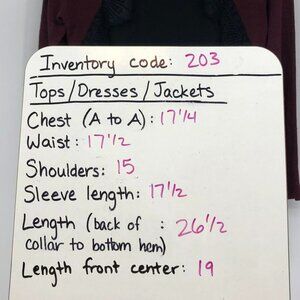 Inventory code: 203
Tops/Dresses/Jackets
Chest (A to A): 17 1/4
Waist: 17 1/2
Shoulders: 15
Sleeve length: 17 1/2
Length (back of : 26 1/2
collar to bottom hem)
Length front center: 19